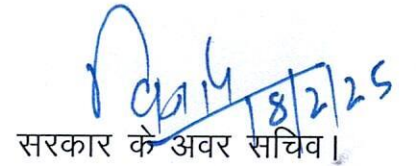 18/2/25
सरकार के अवर सचिव।